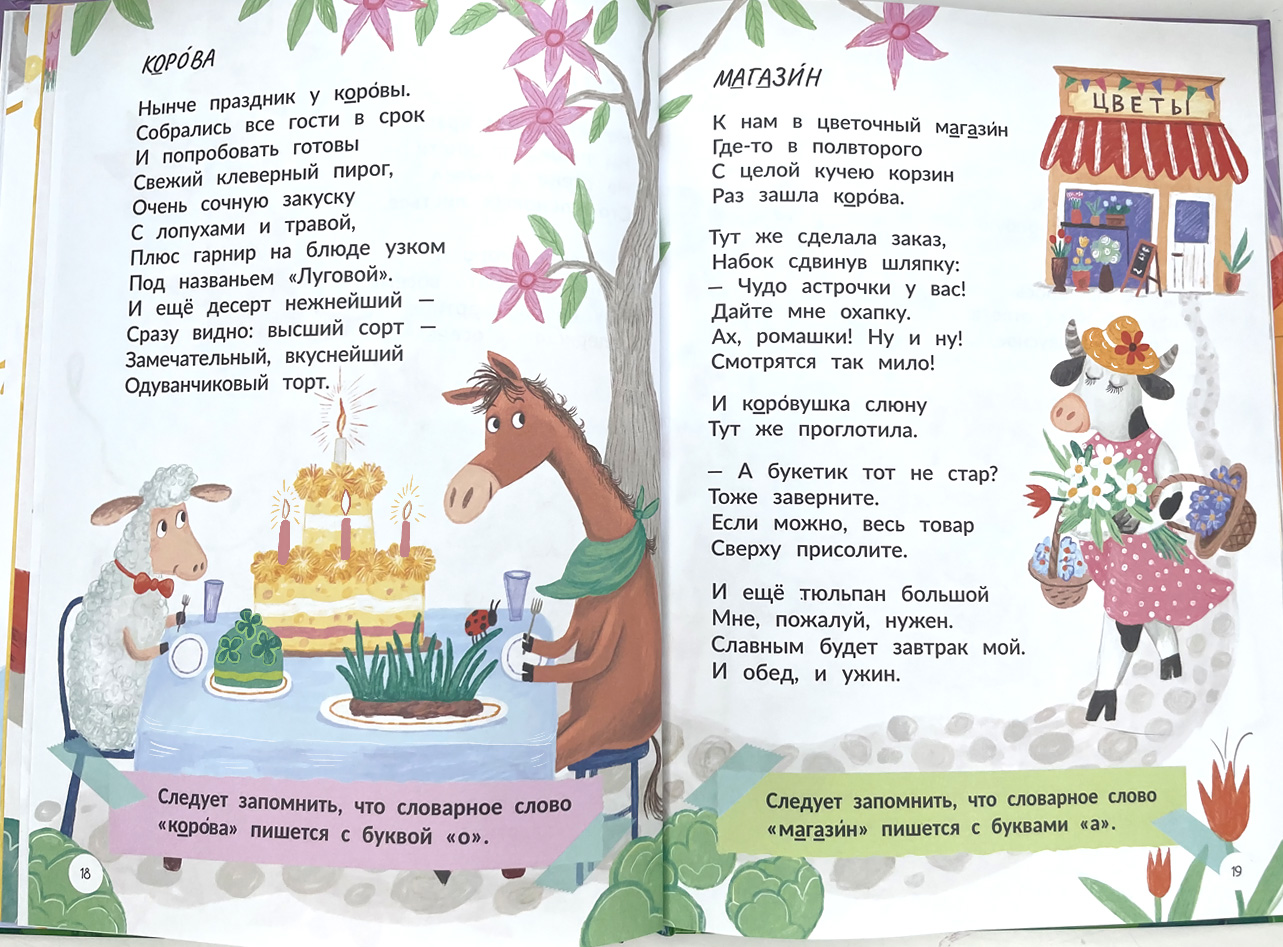 КОРО́ВА
Нынче праздник у коро́вы.
Собрались все гости в срок
И попробовать готовы
Свежий клеверный пирог,
Очень сочную закуску
С лопухами и травой,
Плюс гарнир на блюде узком
Под названьем «Луговой».
И ещё десерт нежнейший —
Сразу видно: высший сорт —
Замечательный, вкуснейший
Одуванчиковый торт.
Следует запомнить, что словарное слово
«коро́ва» пишется с буквой «о».
18
МАГАЗИ́Н
К нам в цветочный магази́н
Где-то в полвторого
С целой кучею корзин
Раз зашла коро́ва.
Тут же сделала заказ,
Набок сдвинув шляпку:
— Чудо астрочки у вас!
Дайте мне охапку.
Ах, ромашки! Ну и ну!
Смотрятся так мило!
И коро́вушка слюну
Тут же проглотила.
— А букетик тот не стар?
Тоже заверните.
Если можно, весь товар
Сверху присолите.
И ещё тюльпан большой
Мне, пожалуй, нужен.
Славным будет завтрак мой.
И обед, и ужин.
ЦВЕТЫ
Следует запомнить, что словарное слово
«магази́н» пишется с буквами «а».
19